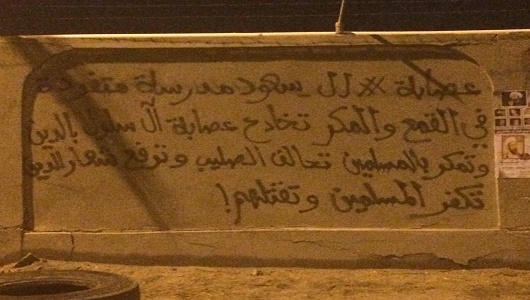 عصابة ال سعود مدرسة متفردة
في القمع والمكر تخادع عصابة آل سلول بالدين
وتمكر بالمسلمين تحالف الصليب وترفع شعار الدين
تكفر المسلمين وتقتلهم!